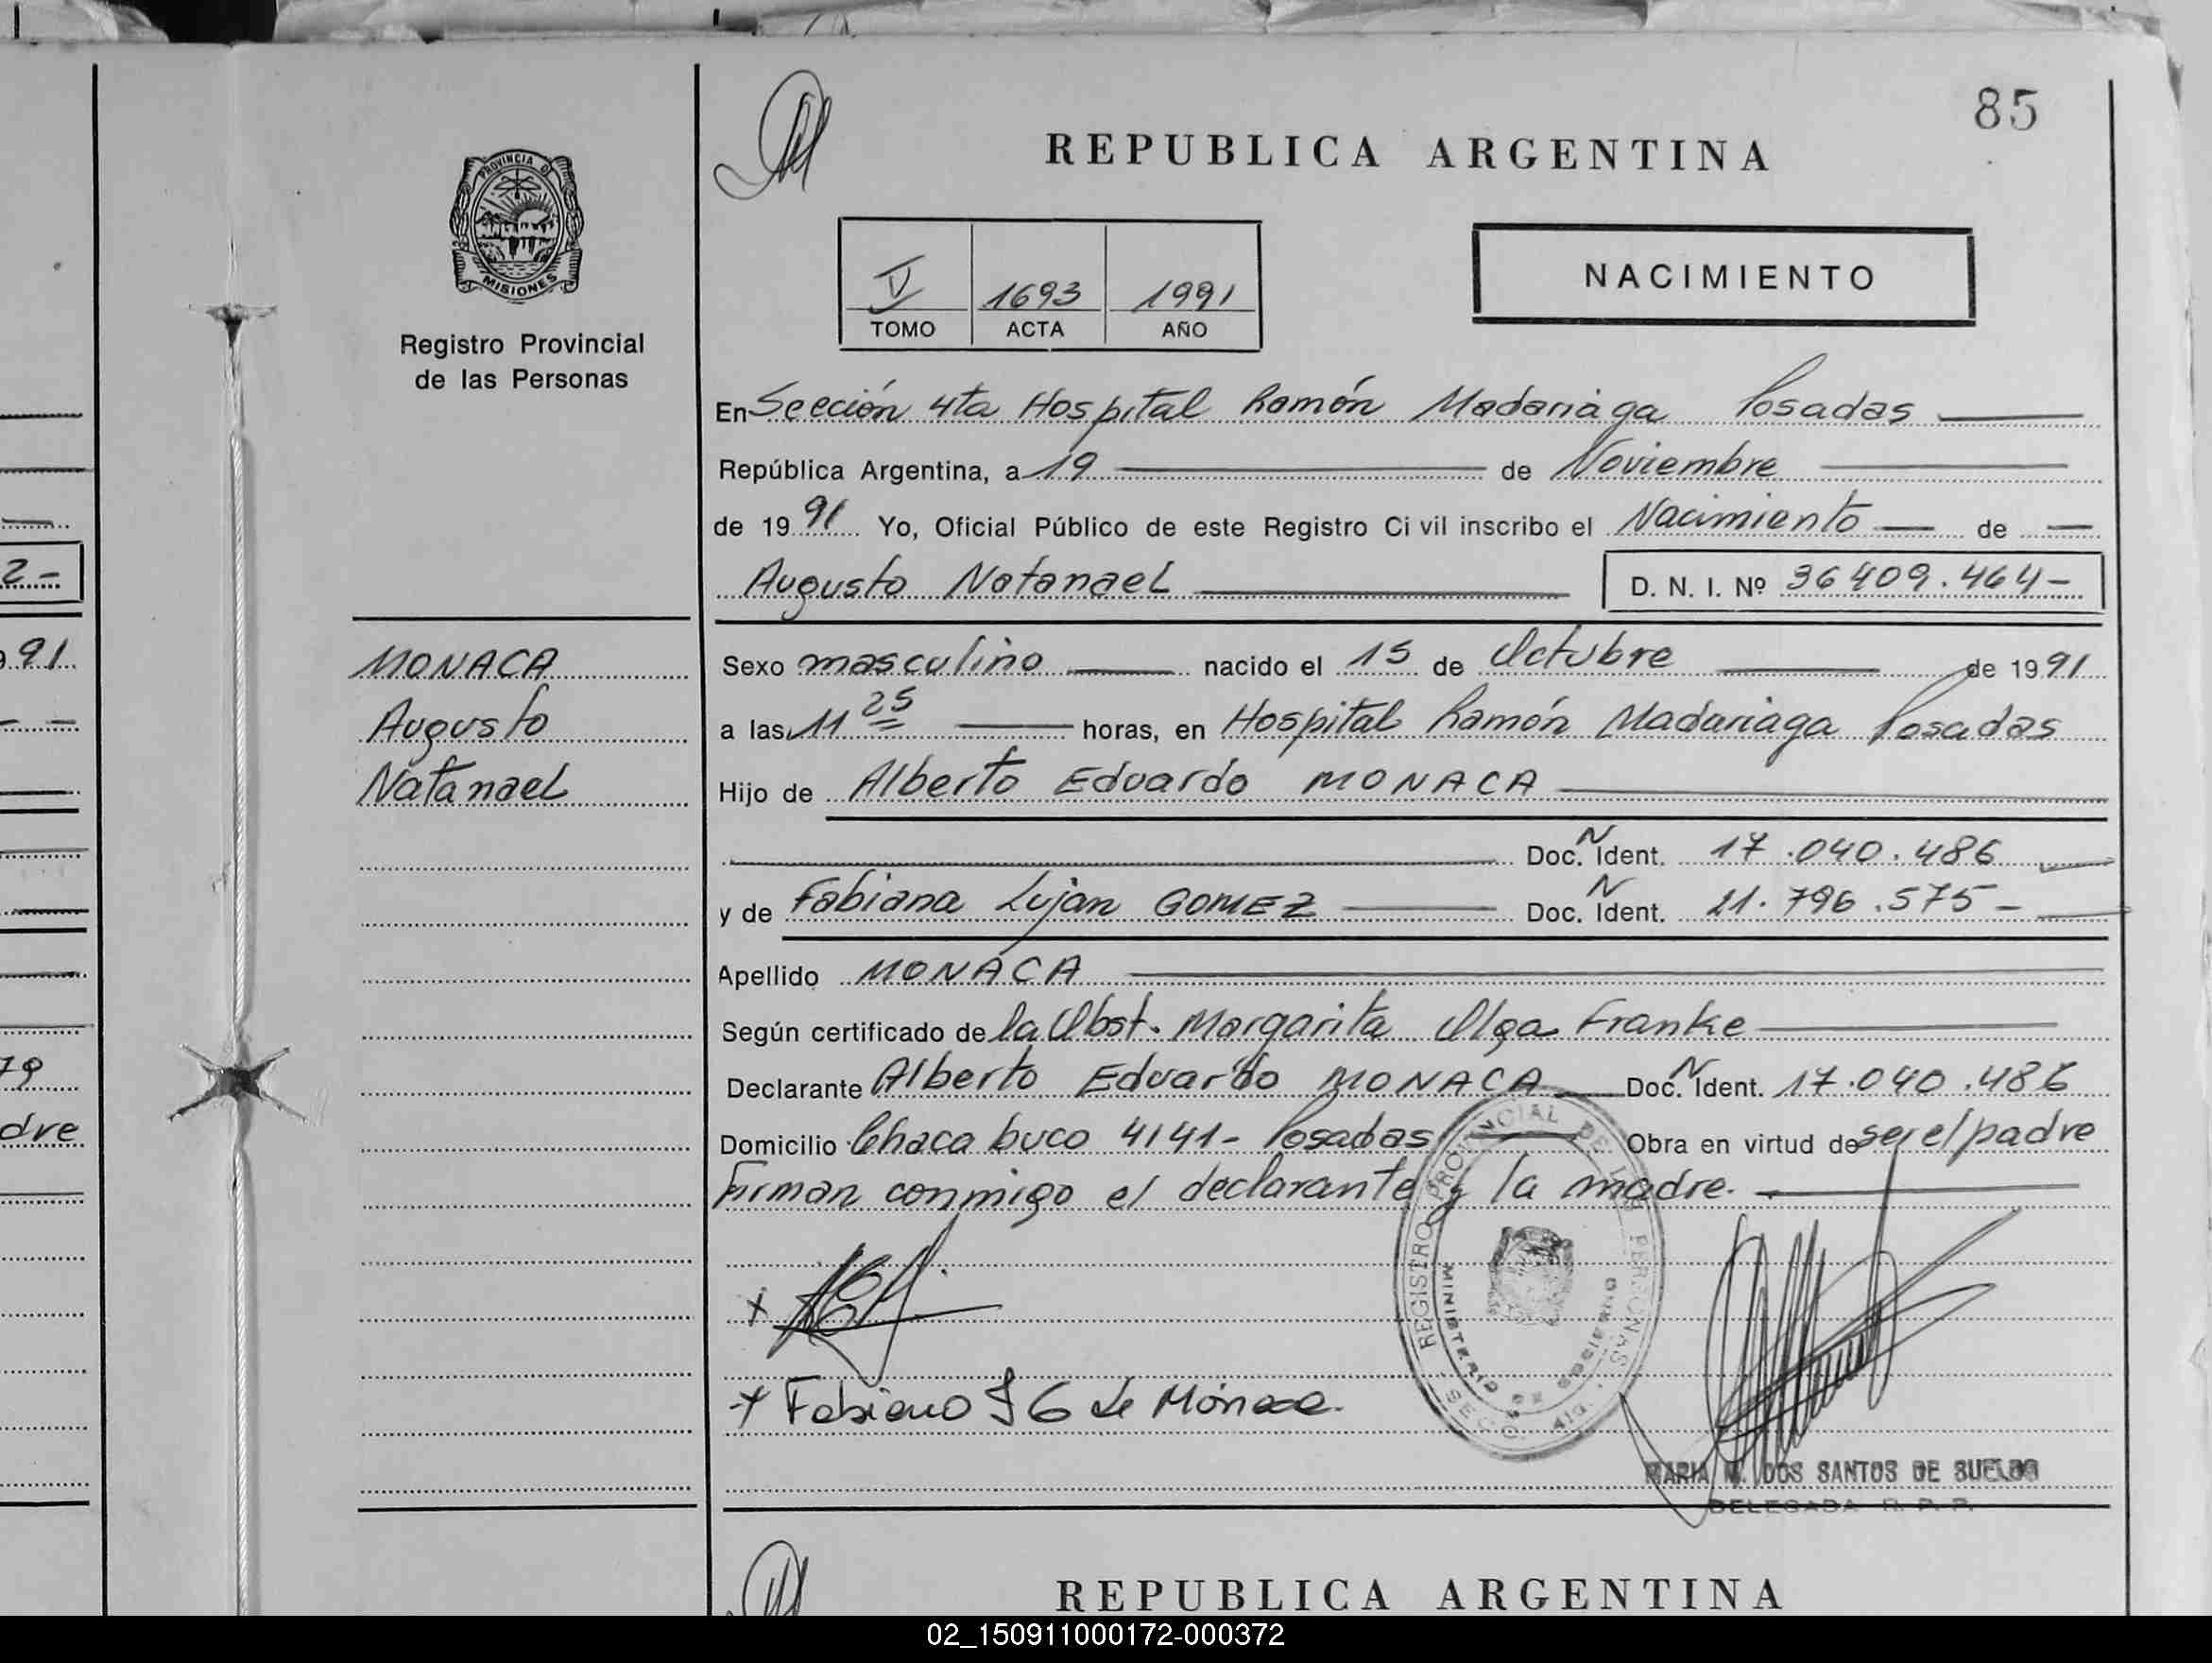 85
REPUBLICA ARGENTINA
PROVINCIA DE
MISIONES
Registro Provincial
de las Personas
V 1693 1991
TOMO ACTA AÑO
NACIMIENTO
En Sección 4ta Hospital Ramón Madariaga Posadas
República Argentina, a 19 de Noviembre
de 19 91 Yo, Oficial Público de este Registro Civil inscribo el Nacimiento de
Augusto Natanael D. N. I. Nº 36409.464-
2-
91
MONACA
Augusto
Natanael
Sexo masculino nacido el 15 de Octubre de 1991
a las 11 25 horas, en Hospital Ramón Madariaga Posadas
Hijo de Alberto Eduardo MONACA
Doc. N Ident. 17.040.486
y de Fabiana Lujan GOMEZ Doc. N Ident. 21.796.575-
Apellido MONACA
Según certificado de la Obst. Margarita Olga Franke
79
Declarante Alberto Eduardo MONACA Doc. N Ident. 17.040.486
dre
Domicilio Chacabuco 4141- Posadas Obra en virtud de ser el padre
Firman conmigo el declarante y la madre.
REGISTRO PROVINCIAL DE LAS PERSONAS
MINISTERIO DE GOBIERNO
x
x Fabiana L G de Mónaca.
MARIA M. DOS SANTOS DE SUELDO
DELEGADA R. P. P.
REPUBLICA ARGENTINA
02_150911000172-000372